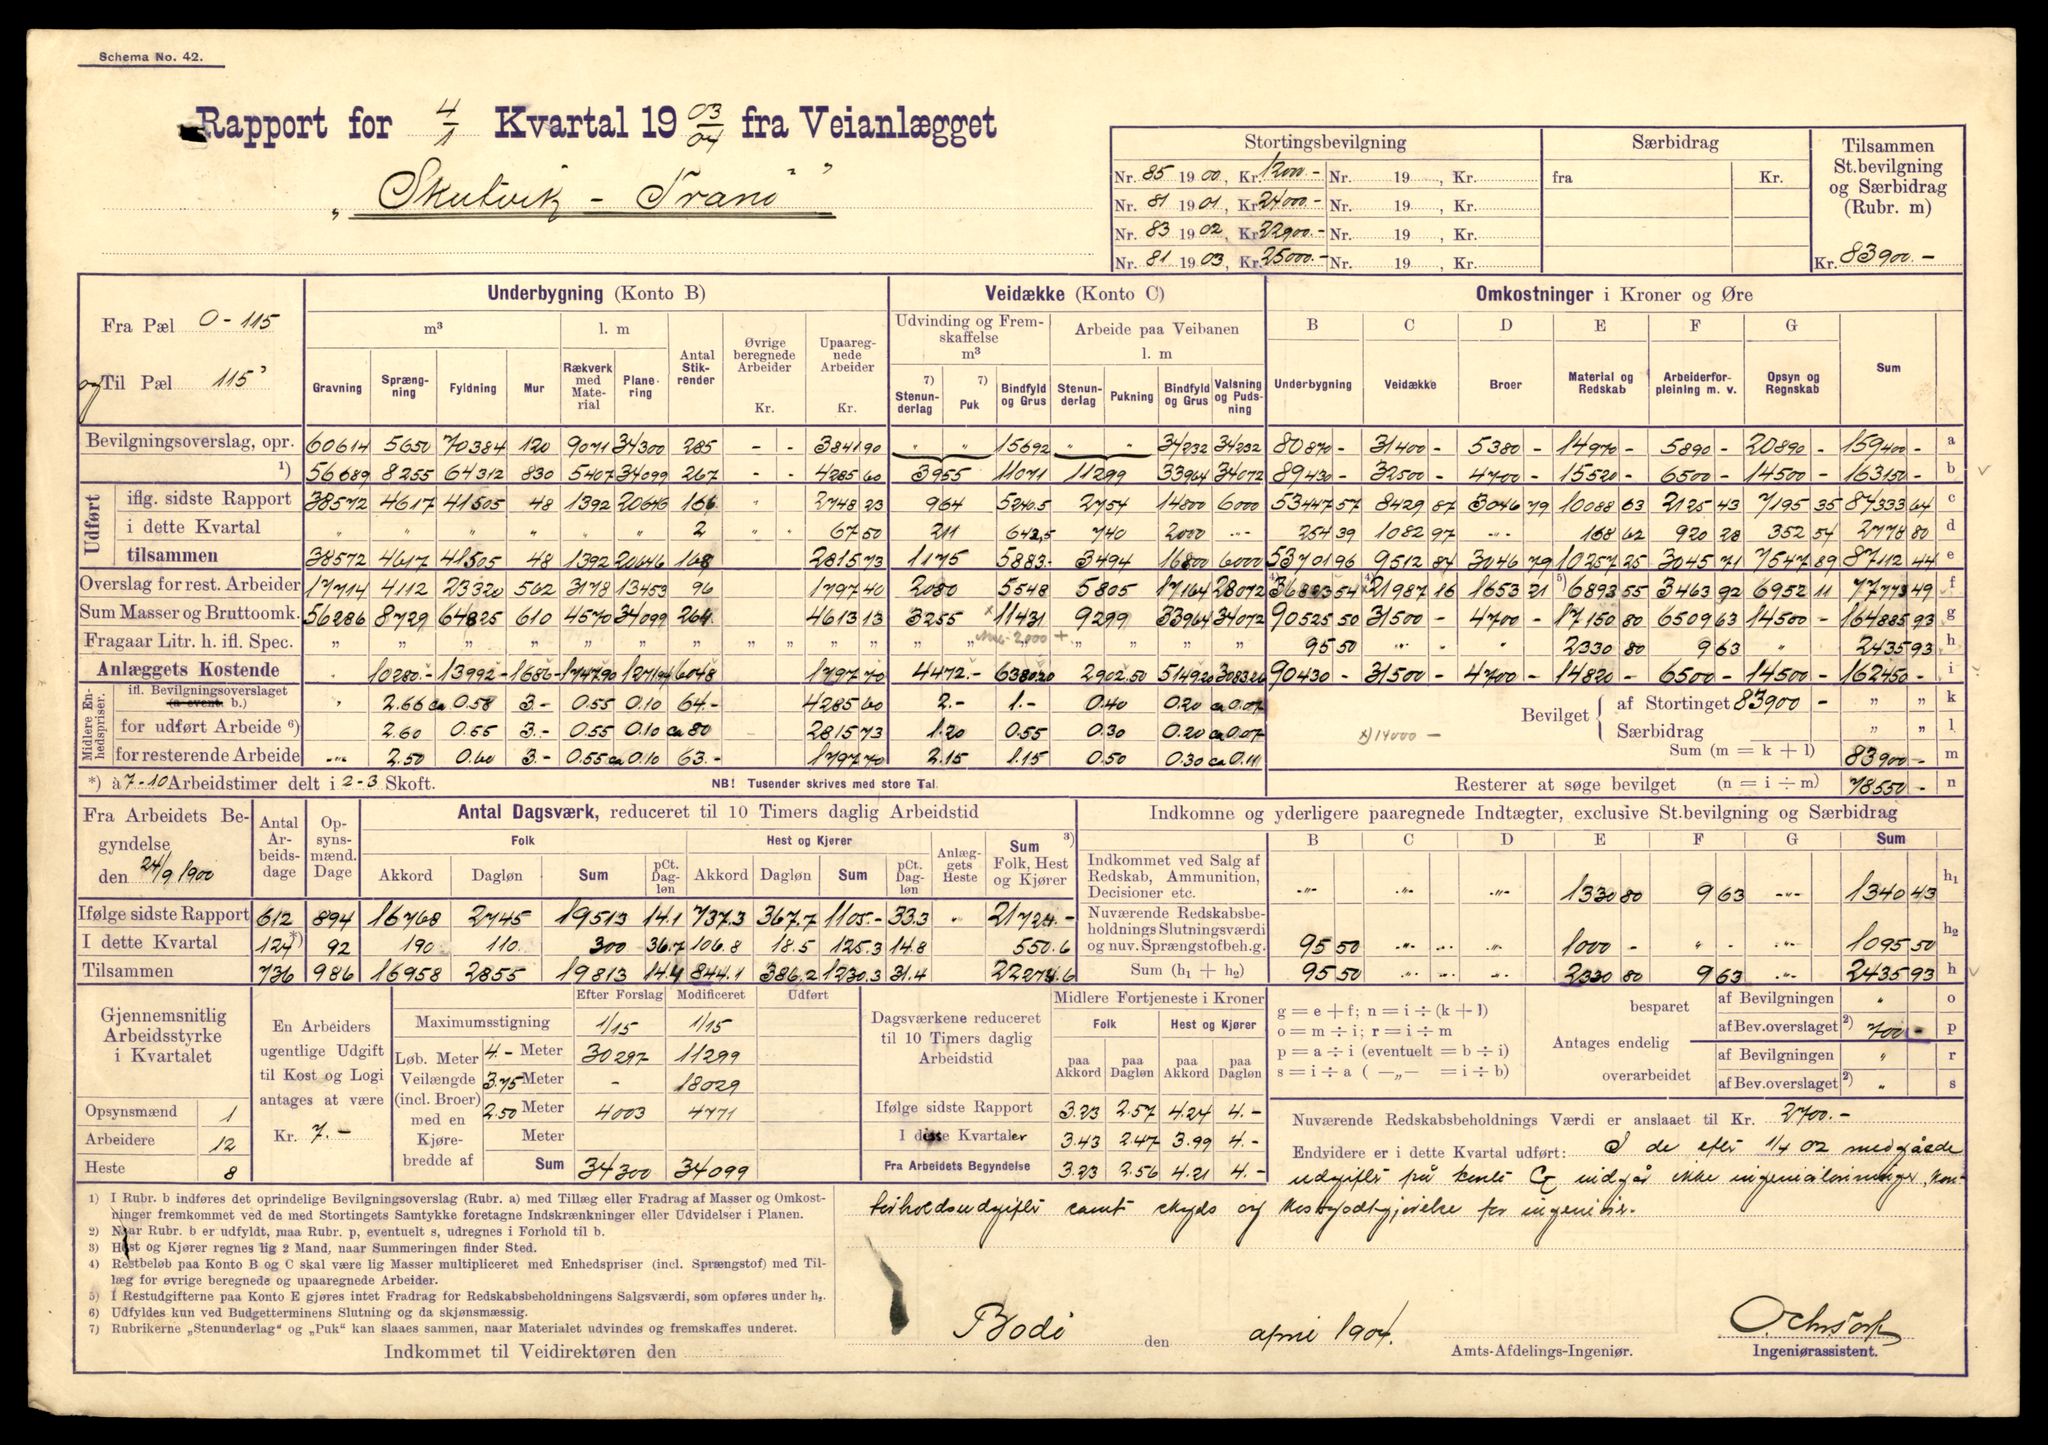 Schema No. 42.
Rapport for 4/1 Kvartal 19 03/04 fra Veianlægget
„Skutvik - Tranö”
Stortingsbevilgning | Særbidrag | Tilsammen St.bevilgning og Særbidrag (Rubr. m)
Nr. 85 1900, Kr. 12000.- Nr. 19 , Kr. | fra Kr.
Nr. 81 1901, Kr. 24000.- Nr. 19 , Kr.
Nr. 83 1902, Kr. 22900.- Nr. 19 , Kr.
Nr. 81 1903, Kr. 25000.- Nr. 19 , Kr. | Kr. 83900.-
Fra Pæl 0-115
og Til Pæl 115
Underbygning (Konto B) | Veidække (Konto C) | Omkostninger i Kroner og Øre
m³ | l. m | Antal Stikrender | Øvrige beregnede Arbeider Kr. | Upaaregnede Arbeider Kr. | Udvinding og Fremskaffelse m³ | Arbeide paa Veibanen l. m | B | C | D | E | F | G | Sum
Gravning | Sprængning | Fyldning | Mur | Rækverk med Materiale | Planering | 7) Stenunderlag | 7) Puk | Bindfyld og Grus | Stenunderlag | Pukning | Bindfyld og Grus | Valsning og Pudsning | Underbygning | Veidække | Broer | Material og Redskab | Arbeiderforpleining m. v. | Opsyn og Regnskab
Bevilgningsoverslag, opr. 60614 | 5650 | 70384 | 120 | 9071 | 34300 | 285 | - | - | 3841 90 | „ | „ | 15692 | „ | „ | 34232 | 34232 | 80870 - | 31400 - | 5380 - | 14970 - | 5890 - | 20890 - | 159400 - | a
1) 56689 | 8255 | 64312 | 830 | 5407 | 34099 | 267 | - | - | 4285 60 | 3955 | 11071 | 11299 | 33964 | 34072 | 89430 - | 32500 - | 4700 - | 15520 - | 6500 - | 14500 - | 163150 - | b
Udført
iflg. sidste Rapport 38572 | 4617 | 41505 | 48 | 1392 | 20646 | 166 | „ | 2748 23 | 964 | 5240.5 | 2754 | 14800 | 6000 | 53447 57 | 8429 87 | 3046 79 | 10088 63 | 2125 43 | 7195 35 | 87333 64 | c
i dette Kvartal „ | „ | „ | „ | „ | „ | 2 | „ | „ | 67 50 | 211 | 642,5 | 740 | 2000 | -„- | 254 39 | 1082 97 | -„- | 168 62 | 920 28 | 352 54 | 2778 80 | d
tilsammen 38572 | 4617 | 41505 | 48 | 1392 | 20646 | 168 | 2815 73 | 1175 | 5883.- | 3494 | 16800 | 6000 | 53701 96 | 9512 84 | 3046 79 | 10257 25 | 3045 71 | 7547 89 | 87112 44 | e
Overslag for rest. Arbeider 17714 | 4112 | 23320 | 562 | 3178 | 13453 | 96 | 1797 40 | 2080 | 5548 | 5805 | 17164 | 28072 | 4) 36823 54 | 4) 21987 16 | 1653 21 | 5) 6893 55 | 3463 92 | 6952 11 | 77773 49 | f
Sum Masser og Bruttoomk. 56286 | 8729 | 64825 | 610 | 4570 | 34099 | 264 | 4613 13 | 3255 | x 11431 | 9299 | 33964 | 34072 | 90525 50 | 31500 - | 4700 - | 17150 80 | 6509 63 | 14500 - | 164885 93 | g
Fragaar Litr. h. ifl. Spec. „ | „ | „ | „ | „ | „ | „ | „ | „ | „ | „ | „ | 2000 + | „ | „ | „ | „ | 95 50 | -„- | „ | 2330 80 | 9 63 | „ | 2435 93 | h
Anlæggets Kostende „ | 10280.- | 13992.- | 1686 - | 1747.90 | 1271.94 | 6048 | 1797 70 | 4472.- | 6380.20 | 2902.50 | 5149.20 | 3083.26 | 90430 - | 31500 - | 4700 - | 14820 - | 6500 - | 14500 - | 162450 - | i
Midlere Enhedspriser.
ifl. Bevilgningsoverslaget (a event. b.) „ | 2.66 | ca 0.58 | 3.- | 0.55 | 0.10 | 64.- | 4285 60 | 2.- | 1.- | 0.40 | 0.20 | ca 0.07
for udført Arbeide 6) 2.60 | 0.55 | 3.- | 0.55 | 0.10 | ca 80 | 2815 73 | 1.20 | 0.55 | 0.30 | 0.20 | ca 0.07 | x) 14000 -
for resterende Arbeide -„- | 2.50 | 0.60 | 3.- | 0.55 | ca 0.10 | 63.- | 1797 70 | 2.15 | 1.15 | 0.50 | 0.30 | ca 0.11
Bevilget { af Stortinget 83900 - | „ | „ | k
Særbidrag | „ | „ | l
Sum (m = k + l) 83900 - | m
Resterer at søge bevilget (n = i ÷ m) 78550 - | n
*) à 7-10 Arbeidstimer delt i 2-3 Skoft. NB! Tusender skrives med store Tal.
Fra Arbeidets Begyndelse den 24/9 1900
Antal Arbeidsdage | Opsynsmænd. Dage | Antal Dagsværk, reduceret til 10 Timers daglig Arbeidstid
Folk | Hest og Kjører | Anlæggets Heste | Sum 3) Folk, Hest og Kjører
Akkord | Dagløn | Sum | pCt. Dagløn | Akkord | Dagløn | Sum | pCt. Dagløn
Ifølge sidste Rapport 612 | 894 | 16768 | 2745 | 19513 | 14.1 | 737.3 | 367.7 | 1105.- | 33.3 | „ | 21724.-
I dette Kvartal 124 *) | 92 | 190 | 110 | 300 | 36.7 | 106.8 | 18.5 | 125.3 | 14.8 | 550.6
Tilsammen 736 | 986 | 16958 | 2855 | 19813 | 14.4 | 844.1 | 386.2 | 1230.3 | 31.4 | 22274.6
Indkomne og yderligere paaregnede Indtægter, exclusive St.bevilgning og Særbidrag
B | C | D | E | F | G | Sum
Indkommet ved Salg af Redskab, Ammunition, Decisioner etc. -„- | -„- | -„- | 1330 80 | 9 63 | -„- | 1340 43 | h₁
Nuværende Redskabsbeholdnings Slutningsværdi og nuv. Sprængstofbeh.g. 95 50 | -„- | -„- | 1000 - | „ - | -„- | 1095 50 | h₂
Sum (h₁ + h₂) 95 50 | -„- | -„- | 2330 80 | 9 63 | -„- | 2435 93 | h
Gjennemsnitlig Arbeidsstyrke i Kvartalet
Opsynsmænd 1
Arbeidere 12
Heste 8
En Arbeiders ugentlige Udgift til Kost og Logi antages at være
Kr. 7.-
Efter Forslag | Modificeret | Udført
Maximumsstigning 1/15 | 1/15
Løb. Meter Veilængde (incl. Broer) med en Kjørebredde af
4.- Meter 30297 | 11299
3.75 Meter - | 18029
2.50 Meter 4003 | 4771
Meter
Sum 34300 | 34099
Dagsværkene reduceret til 10 Timers daglig Arbeidstid
Midlere Fortjeneste i Kroner
Folk | Hest og Kjører
paa Akkord | paa Dagløn | paa Akkord | paa Dagløn
Ifølge sidste Rapport 3.23 | 2.57 | 4.24 | 4.-
I disse Kvartaler 3.43 | 2.47 | 3.99 | 4.-
Fra Arbeidets Begyndelse 3.23 | 2.56 | 4.21 | 4.-
g = e + f; n = i ÷ (k + l)
o = m ÷ i; r = i ÷ m
p = a ÷ i (eventuelt = b ÷ i)
s = i ÷ a ( —„— = i ÷ b)
Antages endelig
besparet af Bevilgningen „ | o
af Bev.overslaget 2) 700 - | p
overarbeidet af Bevilgningen „ | r
af Bev.overslaget 2) „ | s
Nuværende Redskabsbeholdnings Værdi er anslaaet til Kr. 2700.-
Endvidere er i dette Kvartal udført: I de efter 1/4 02 medgåede
udgifter på konto G indgår ikke ingeniørlønninger, kon-
torholdsudgifter samt skyds og kostgodtgjørelse for ingeniør.
1) I Rubr. b indføres det oprindelige Bevilgningsoverslag (Rubr. a) med Tillæg eller Fradrag af Masser og Omkost-
ninger fremkommet ved de med Stortingets Samtykke foretagne Indskrænkninger eller Udvidelser i Planen.
2) Naar Rubr. b er udfyldt, maa Rubr. p, eventuelt s, udregnes i Forhold til b.
3) Hest og Kjører regnes lig 2 Mand, naar Summeringen finder Sted.
4) Restbeløb paa Konto B og C skal være lig Masser multipliceret med Enhedspriser (incl. Sprængstof) med Til-
læg for øvrige beregnede og upaaregnede Arbeider.
5) I Restudgifterne paa Konto E gjøres intet Fradrag for Redskabsbeholdningens Salgsværdi, som opføres under h₂.
6) Udfyldes kun ved Budgetterminens Slutning og da skjønsmæssig.
7) Rubrikerne „Stenunderlag“ og „Puk“ kan slaaes sammen, naar Materialet udvindes og fremskaffes underet.
Indkommet til Veidirektøren den
Bodö den april 1904.
Amts-Afdelings-Ingeniør.
Ingeniørassistent.